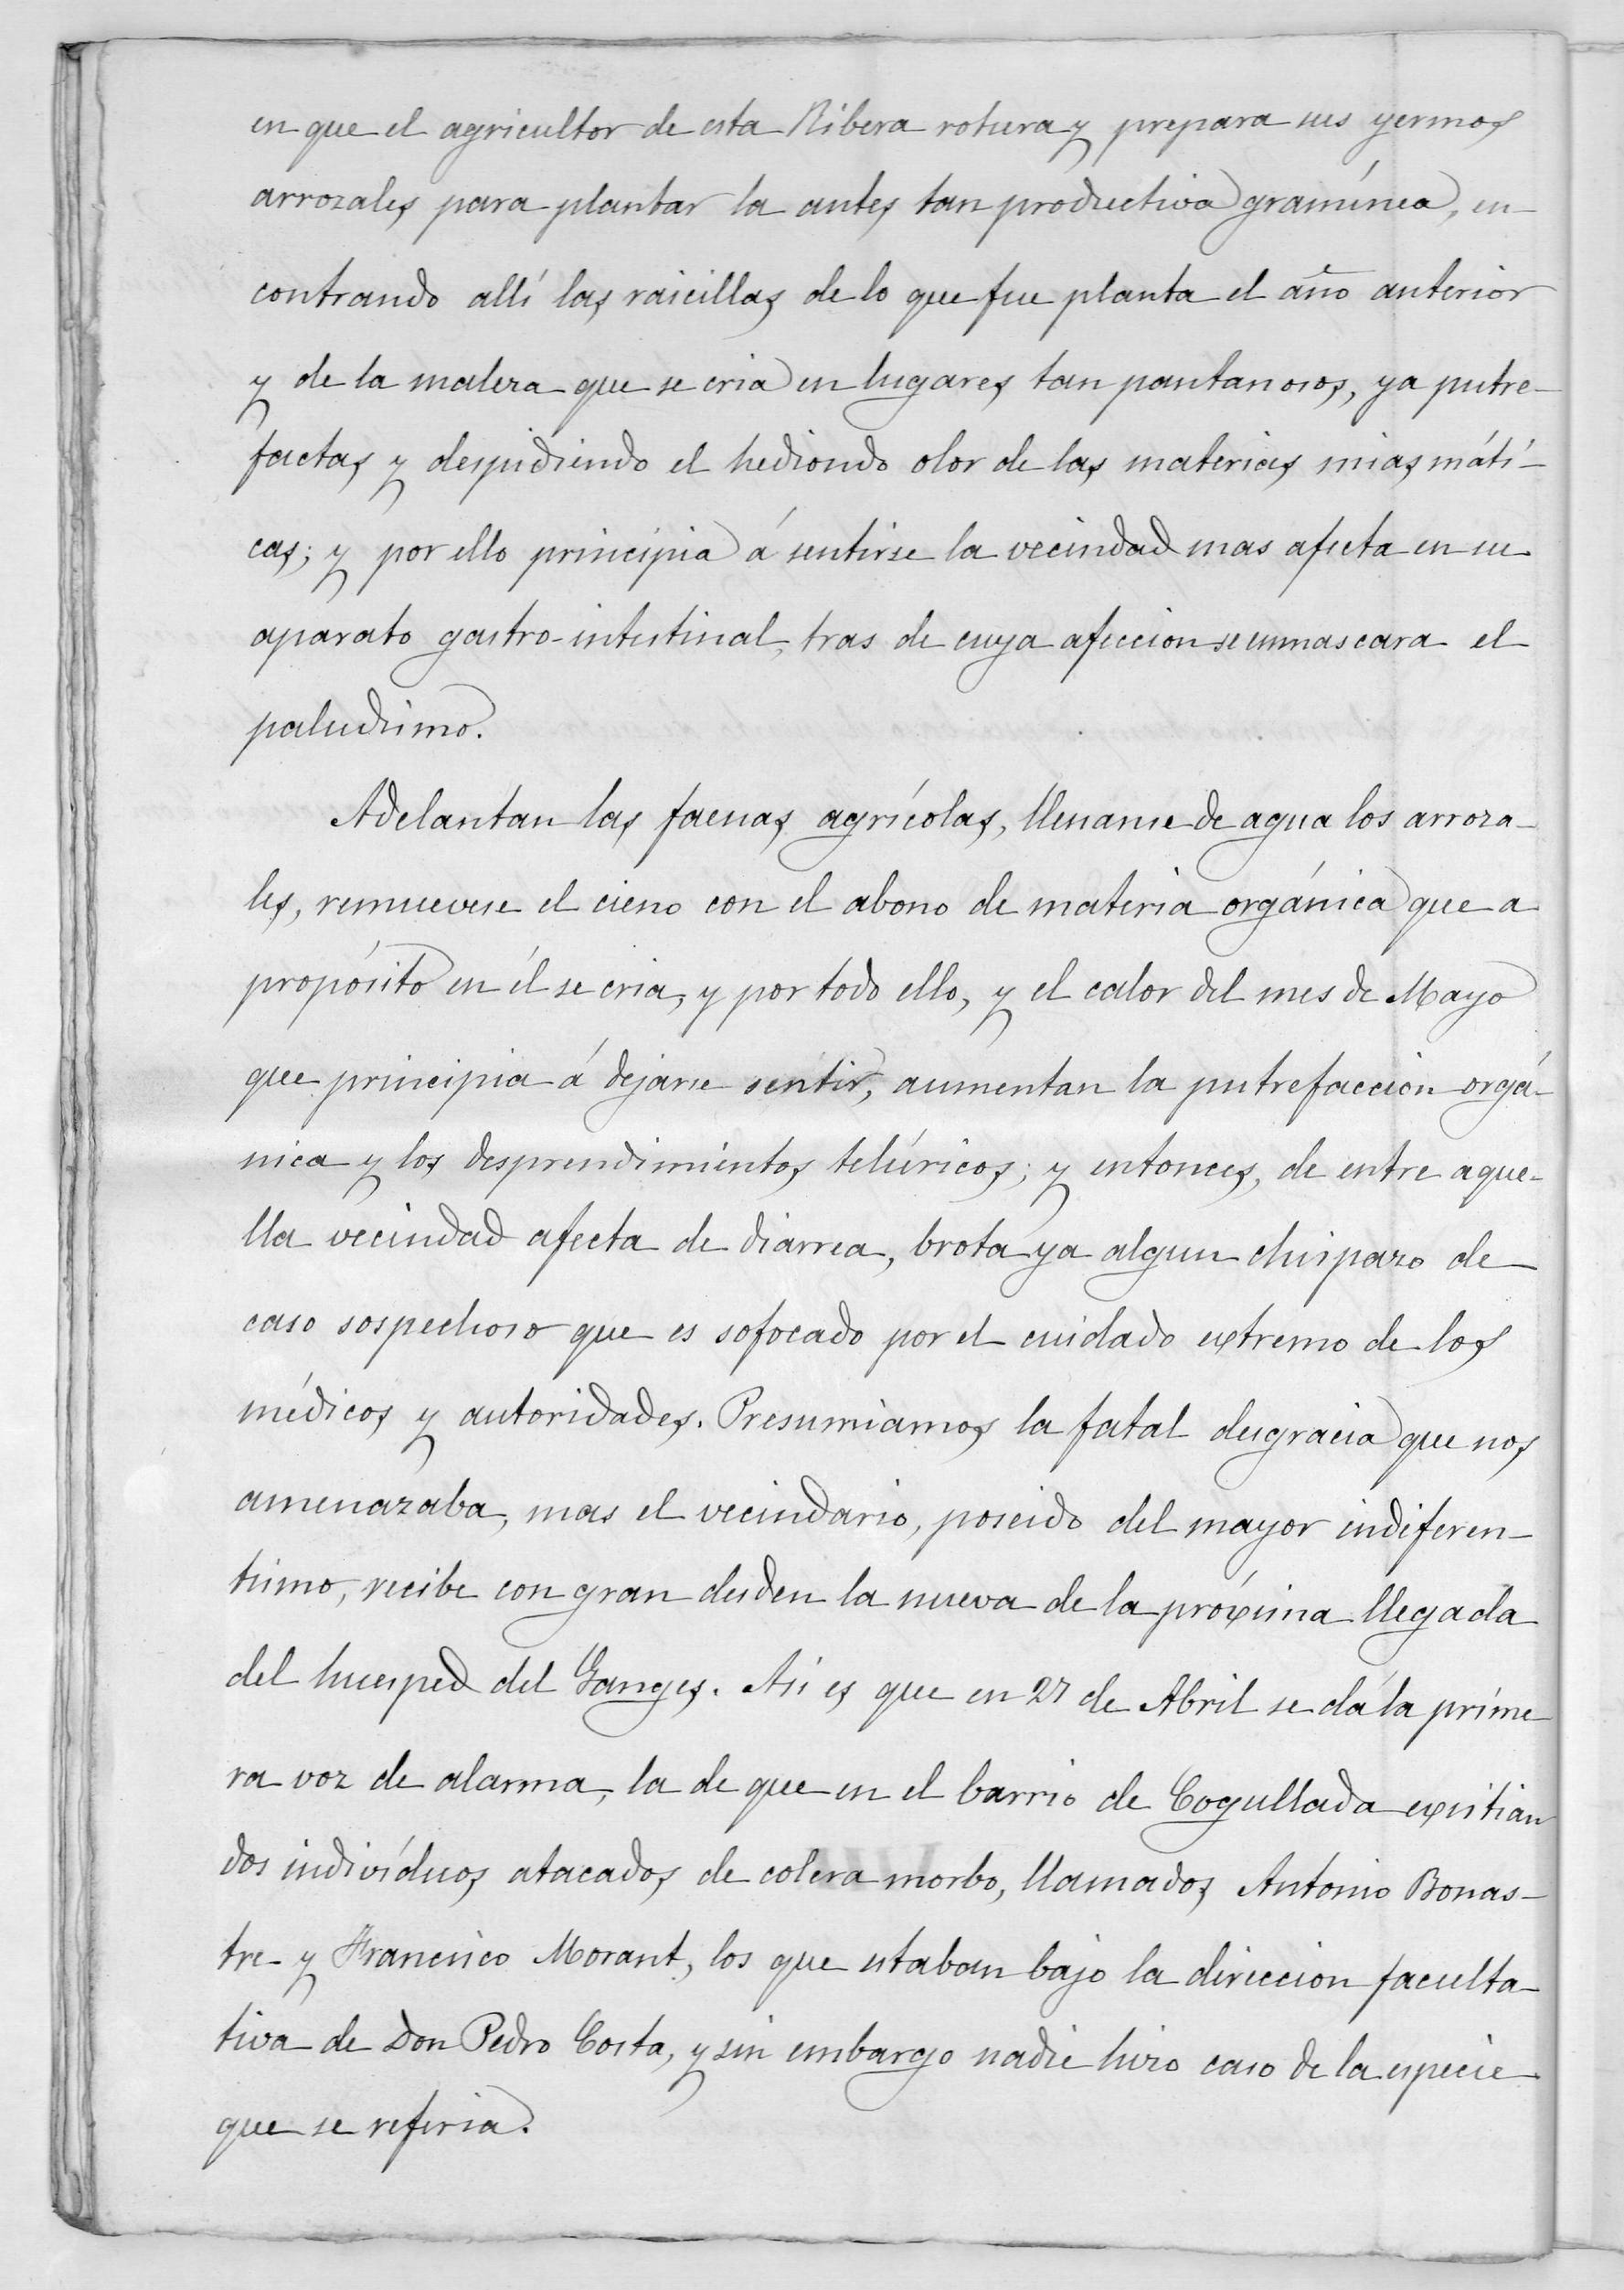 en que el agricultor de esta Ribera rotura y prepara sus yermos
arrozales para plantar la antes tan productiva gramínea, en-
contrando allí las raicillas de lo que fue planta el año anterior
y de la maleza que se cria en lugares tan pantanosos, ya putre-
factas y despidiendo el hediondo olor de las materias miasmáti-
cas; y por ello principia á sentirse la vecindad mas afecta en su
aparato gastro-intestinal, tras de cuya afeccion se enmascara el
paludismo.
Adelantan las faenas agrícolas, llenanse de agua los arroza-
les, remuevese el cieno con el abono de materia orgánica que a
propósito en él se cria, y por todo ello, y el calor del mes de Mayo
que principia á dejarse sentir, aumentan la putrefaccion orgá-
nica y los desprendimientos telúricos; y entonces, de entre aque-
lla vecindad afecta de diarrea, brota ya algun chispazo de
caso sospechoso que es sofocado por el cuidado extremo de los
médicos y autoridades. Presumiamos la fatal desgracia que nos
amenazaba, mas el vecindario, poseido del mayor indiferen-
tismo, recibe con gran desden la nueva de la próxima llegada
del huesped del Ganges. Asi es que en 27 de Abril se dá la prime
ra voz de alarma, la de que en el barrio de Cogullada existian
dos indivíduos atacados de colera morbo, llamados Antonio Bonas-
tre y Francisco Morant, los que estaban bajo la direccion faculta-
tiva de Don Pedro Costa, y sin embargo nadie hizo caso de la especie
que se referia.